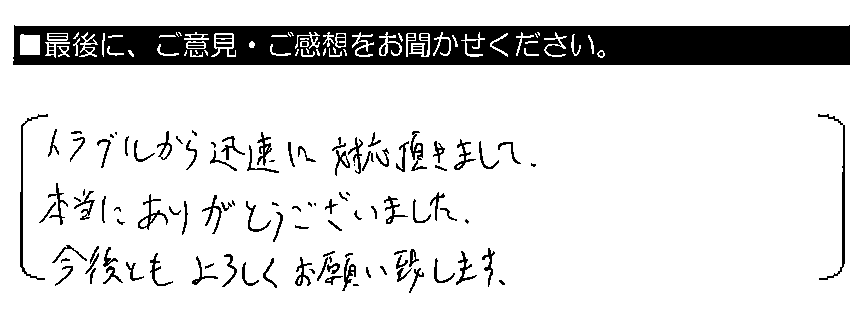 ■最後に、ご意見・ご感想をお聞かせください。
トラブルから迅速に対応頂きまして、
本当にありがとうございました。
今後ともよろしくお願い致します。